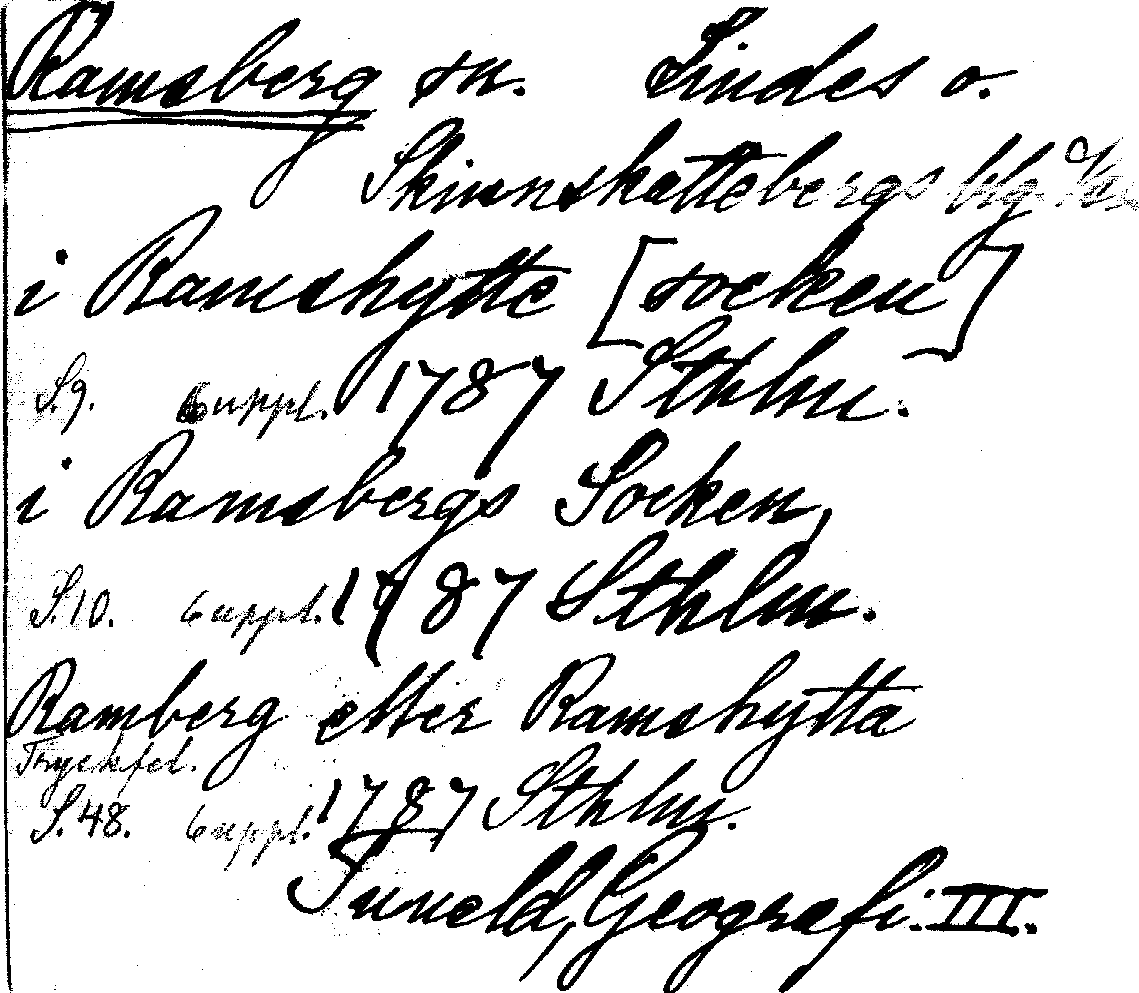 Ramsberg sn. Lindes o.
Skinnskattebergs blg.
i Ramshytte [socken]
S.9. 6 uppl. 1787 Sthlm.
i Ramsbergs Socken,
S.10. 6 uppl. 1787 Sthlm.
Ramberg eller Ramshytta
Tryckfel.
S.48. 6 uppl. 1787 Sthlm.
Tuneld, Geografi. III.